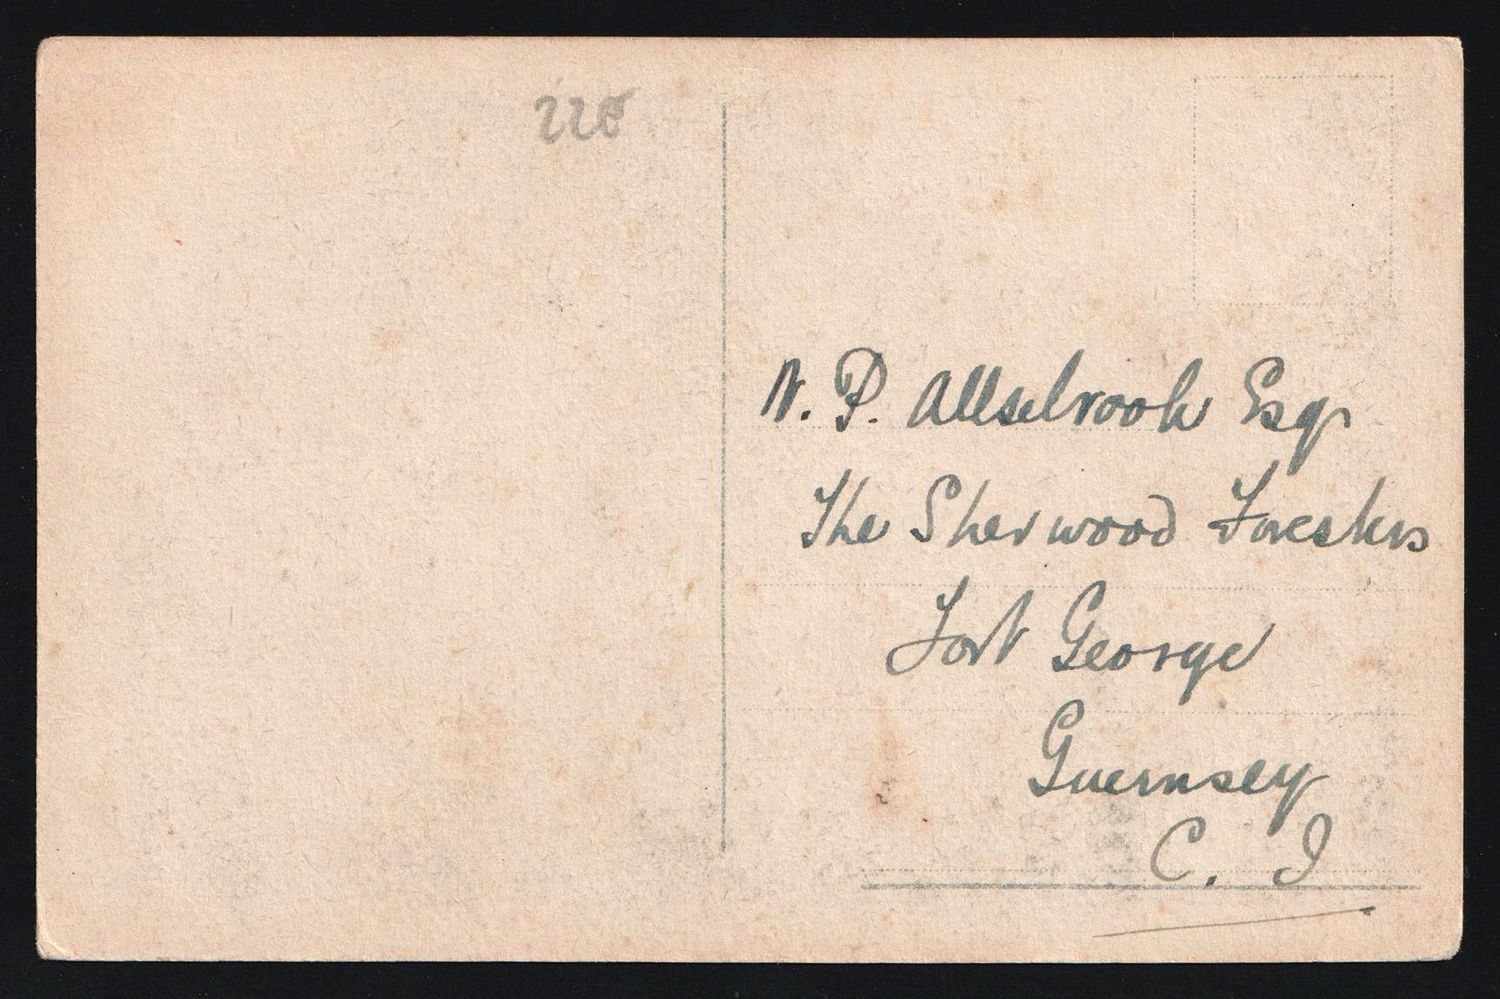 220
N. P. Allsebrook Esqr
The Sherwood Foresters
Fort George
Guernsey
C. I